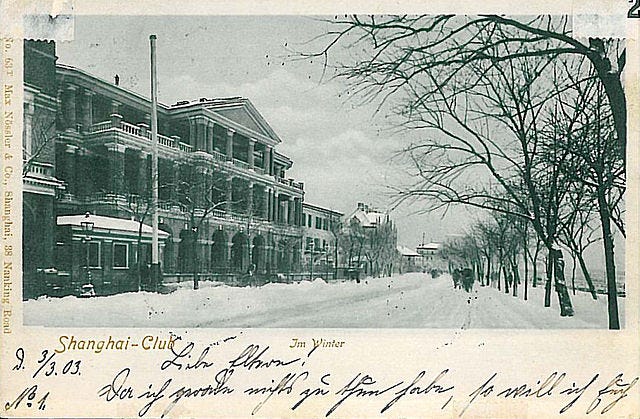 No. 63T Max Nössler & Co., Shanghai, 38 Nanking Road
Shanghai-Club Im Winter
D. 3/3.03. Liebe Eltern!
No 1. Da ich gerade nichts zu thun habe, so will ich Euch